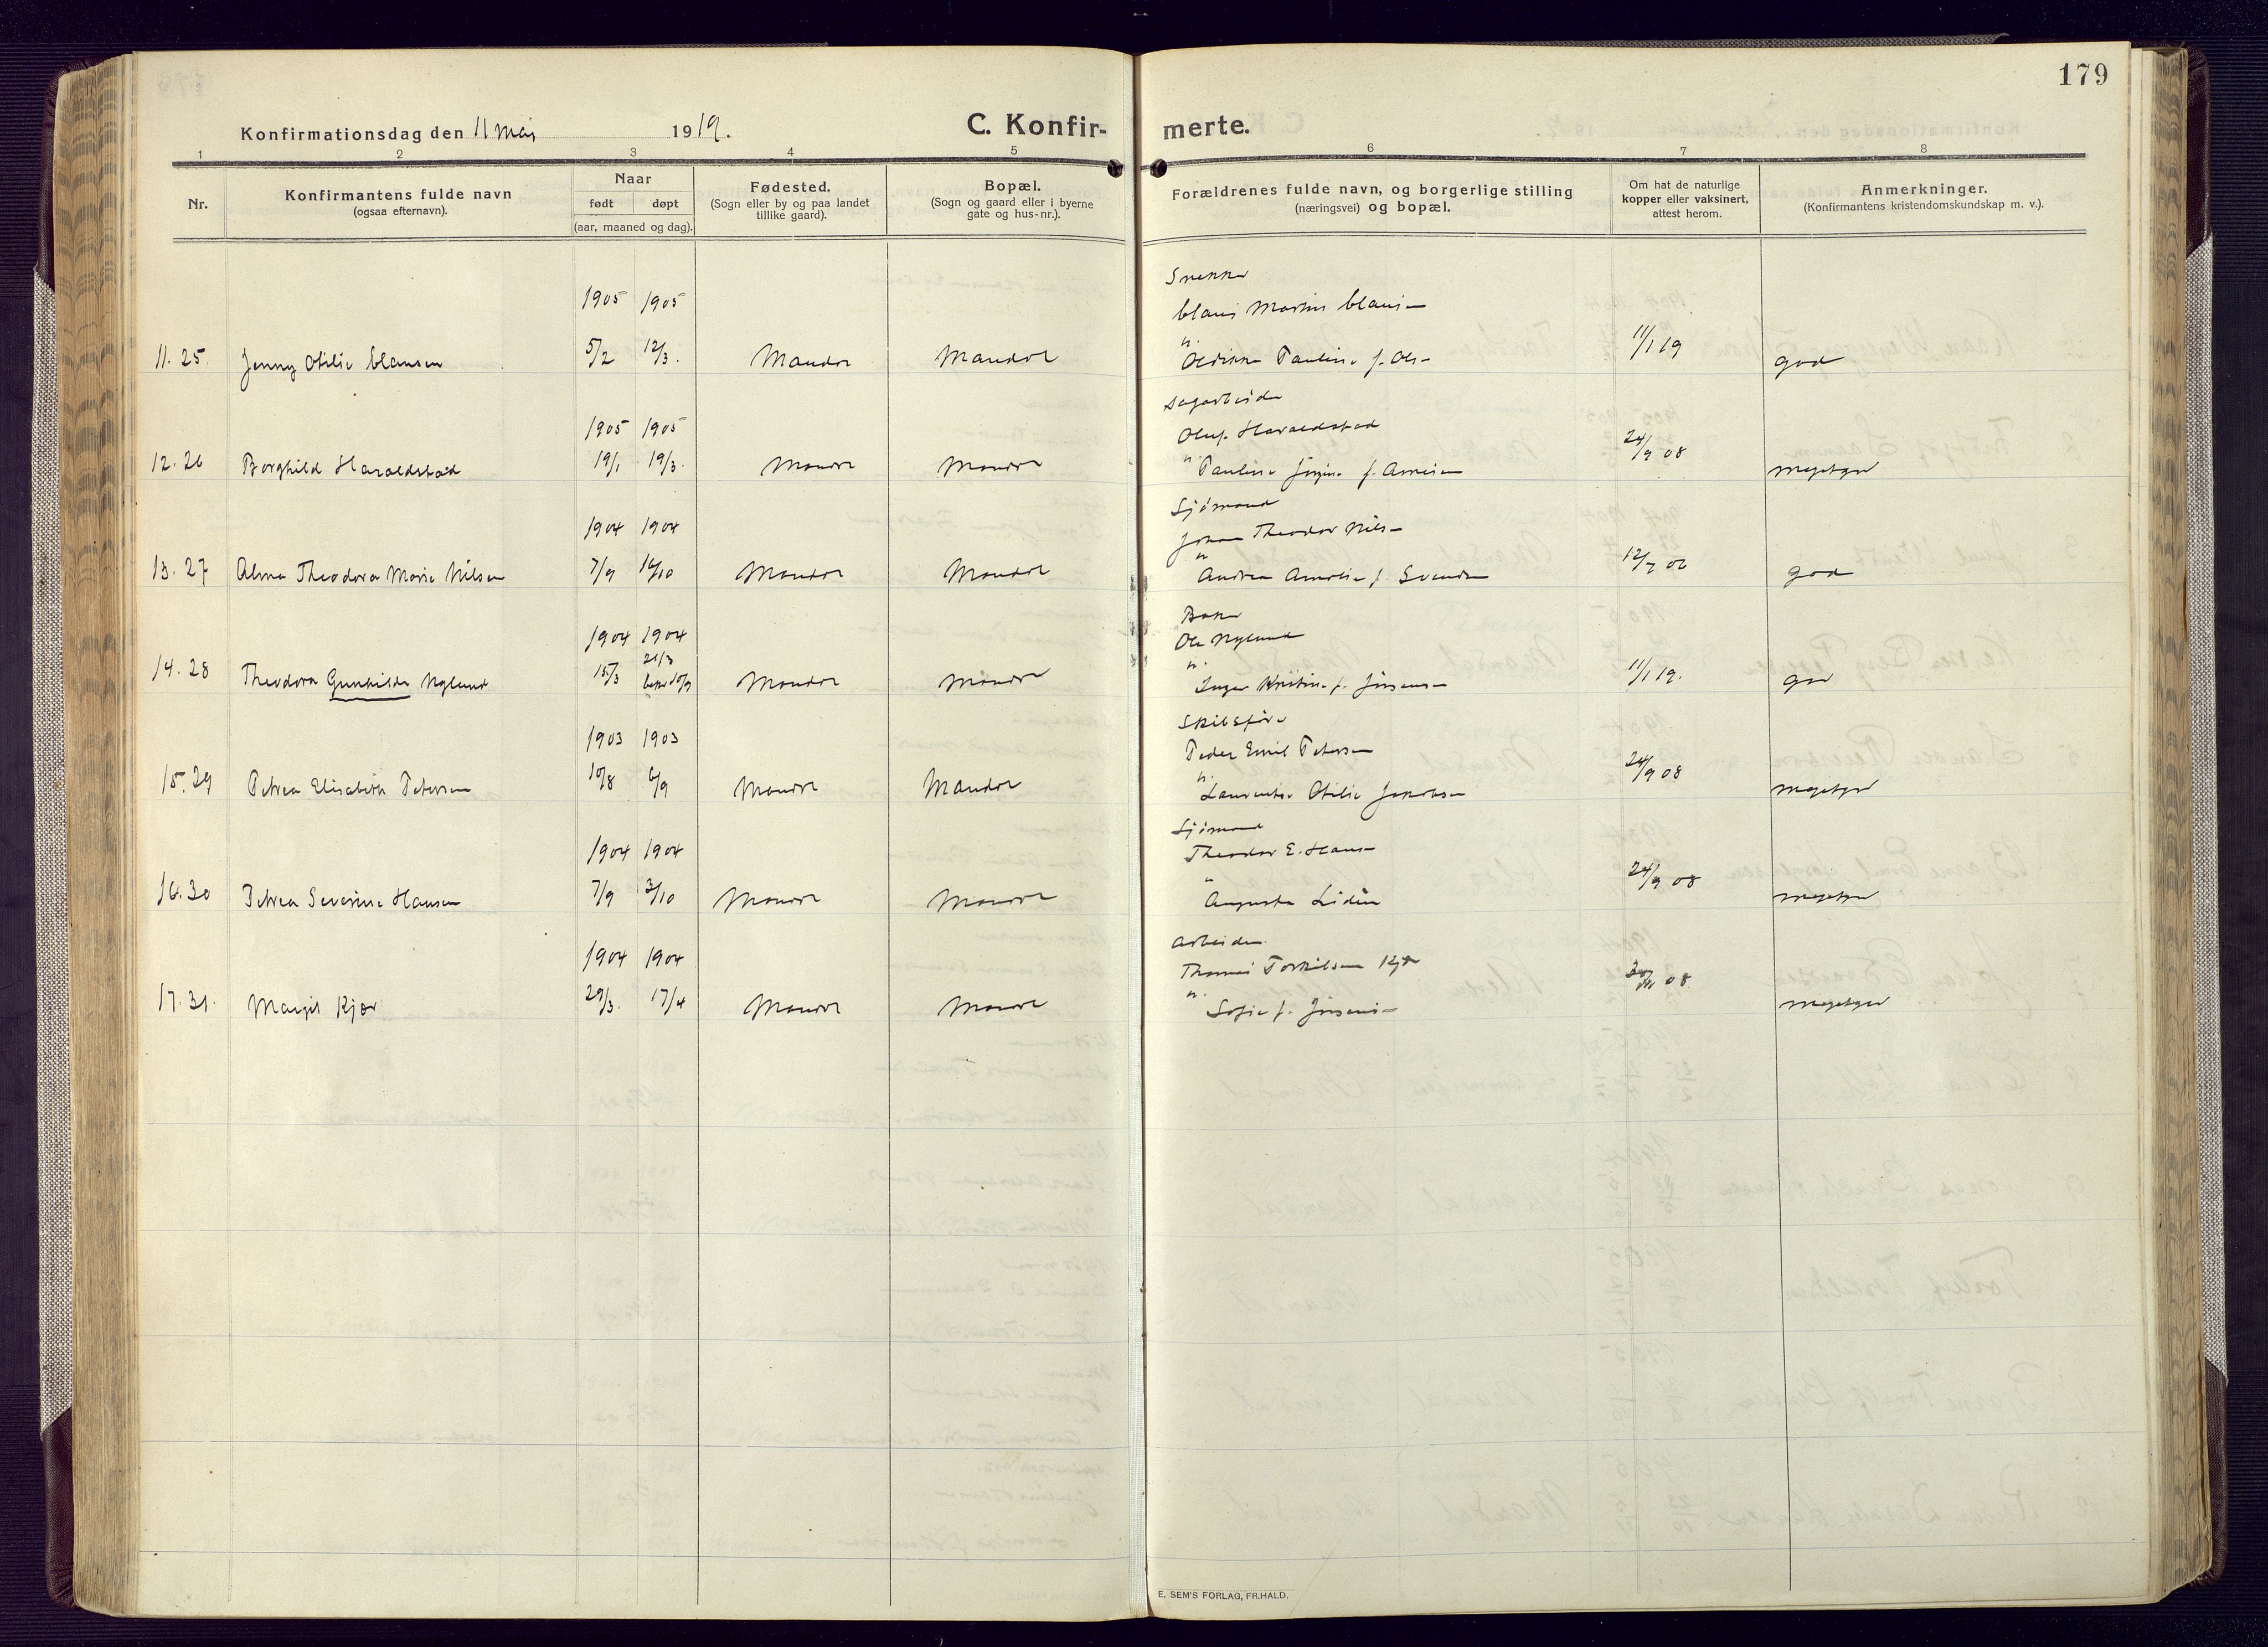 179
Konfirmationsdag den 11 mai 1919.
C. Konfirmerte.
1 2 3 4 5 6 7 8
Nr.
Konfirmantens fulde navn
(ogsaa efternavn).
Naar
født døpt
(aar, maaned og dag).
Fødested.
(Sogn eller by og paa landet
tillike gaard).
Bopæl.
(Sogn og gaard eller i byerne
gate og hus-nr.).
Forældrenes fulde navn, og borgerlige stilling
(næringsvei) og bopæl.
Om hat de naturlige
kopper eller vaksinert,
attest herom.
Anmerkninger.
(Konfirmantens kristendomskundskap m. v.).
Snekker
1905 1905 Claus Martin Clausen
11. 25. Jenny Otilie Clausen 5/2 12/3. Mandal Mandal " Paulina f. Ols 11/1 19 god
Sagarbeider
1905 1905 Oluf Haraldstad
12. 26 Borghild Haraldstad 19/1 19/3. Mandal Mandal " Pauline Jørgine f. Arnesen 24/9 08 megetgod
Sjømand
1904 1904 Johan Theodor Nilsen
13. 27 Alma Theodora Marie Nilsen 7/9 16/10 Mandal Mandal " Andrea Amalie f. Svendsen 12/7 06 god
Baker
1904 1904 Ole Nylund
21/3
14. 28 Theodora Gunhilde Nylund 15/3 Mandal Mandal " Inger Kristine f. Jørgensen 11/1 19. god
Skibsfører
1903 1903 Peder Emil Petersen
15. 29 Petrea Elisabeth Petersen 10/8 6/9 Mandal Mandal " Laurentse Otilie Jakobsen 24/9 08 megetgod
Sjømand
1904 1904 Theodor E. Hansen
16. 30 Petrea Severine Hansen 7/9 3/10 Mandal Mandal " Augusta Lidén 24/9 08 megetgod
Arbeider
1904 1904 Thomas Torkilsen Kjær
17. 31 Margit Kjær 29/3. 17/4 Mandal Mandal " Sofie f. Jørgensen 08 megetgod
E. SEM'S FORLAG, FR.HALD.